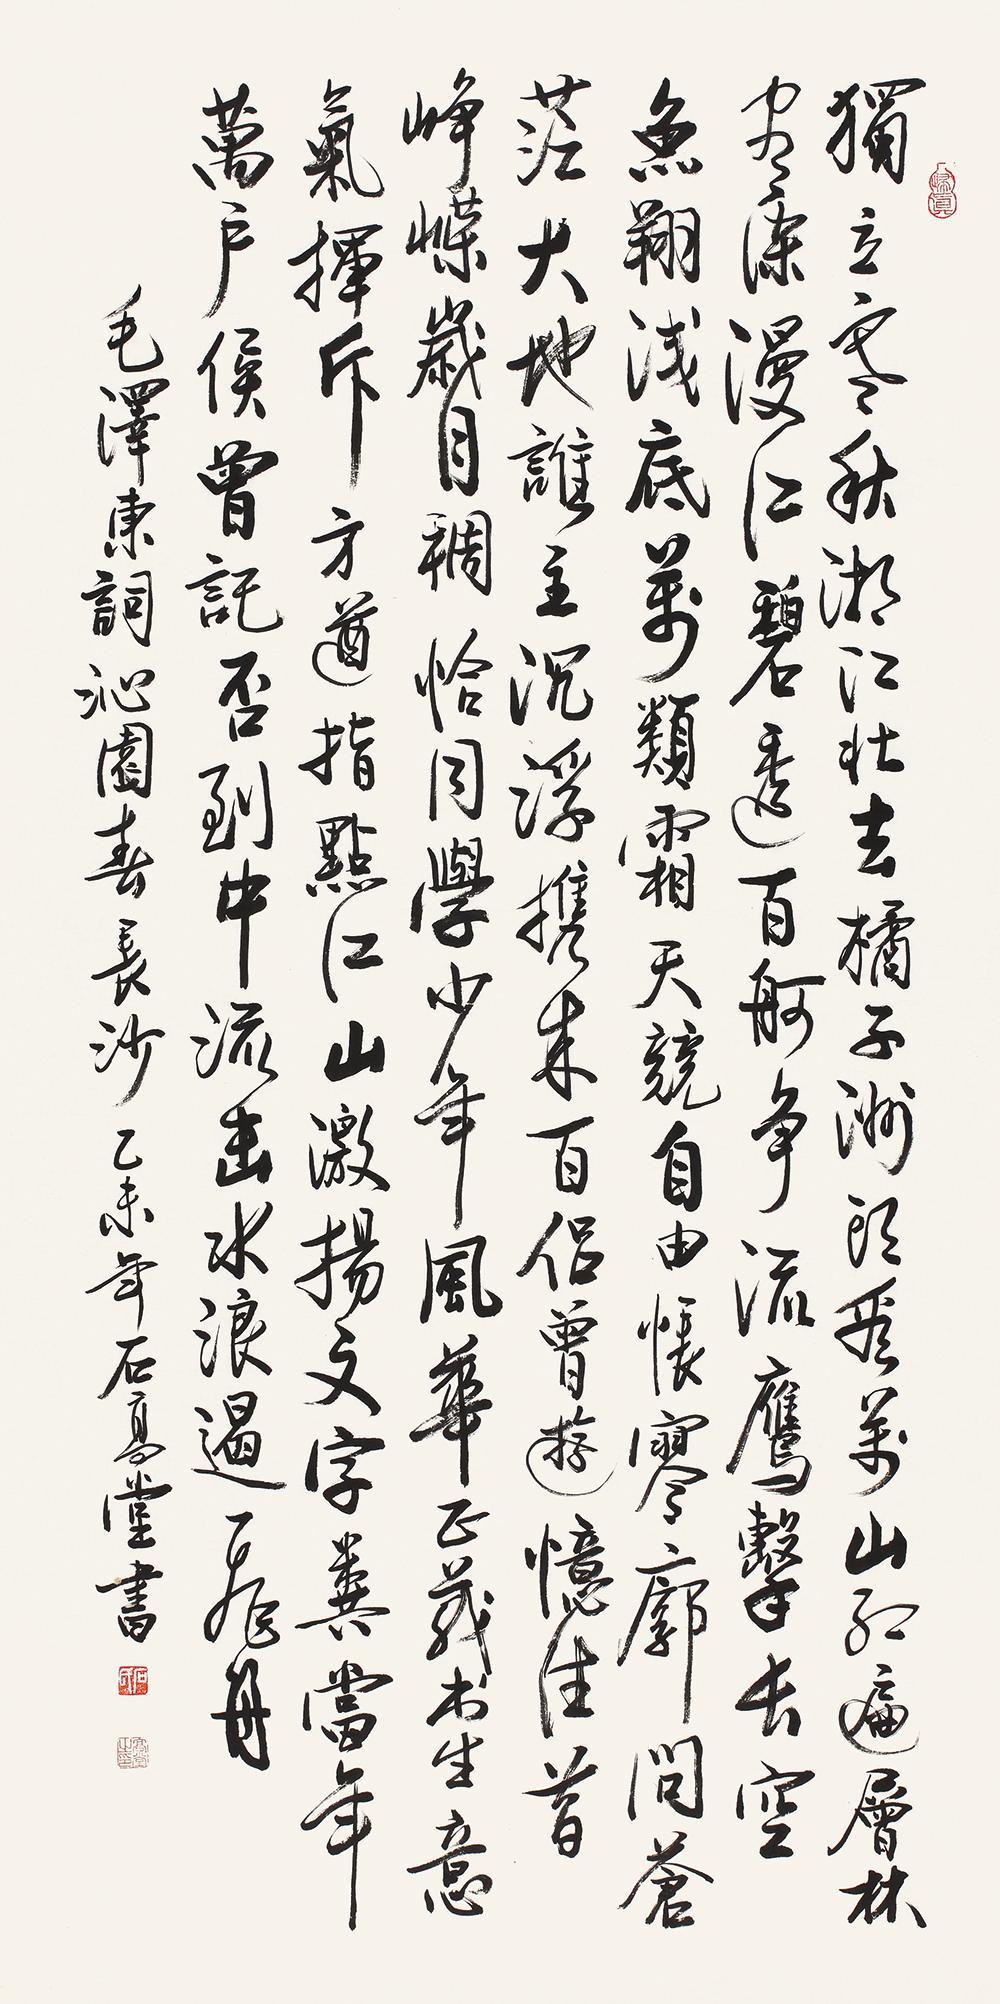 獨立寒秋湘江北去橘子洲頭看萬山紅遍層林
盡染漫江碧透百舸爭流鷹擊長空
魚翔淺底萬類霜天競自由悵寥廓問蒼
茫大地誰主沉浮携來百侶曾遊憶往昔
崢嶸歲月稠恰同學少年風華正茂书生意
氣揮斥方遒指點江山激揚文字糞當年
萬户侯曾記否到中流击水浪遏飛舟
毛澤東詞沁園春長沙乙未年石高堂書